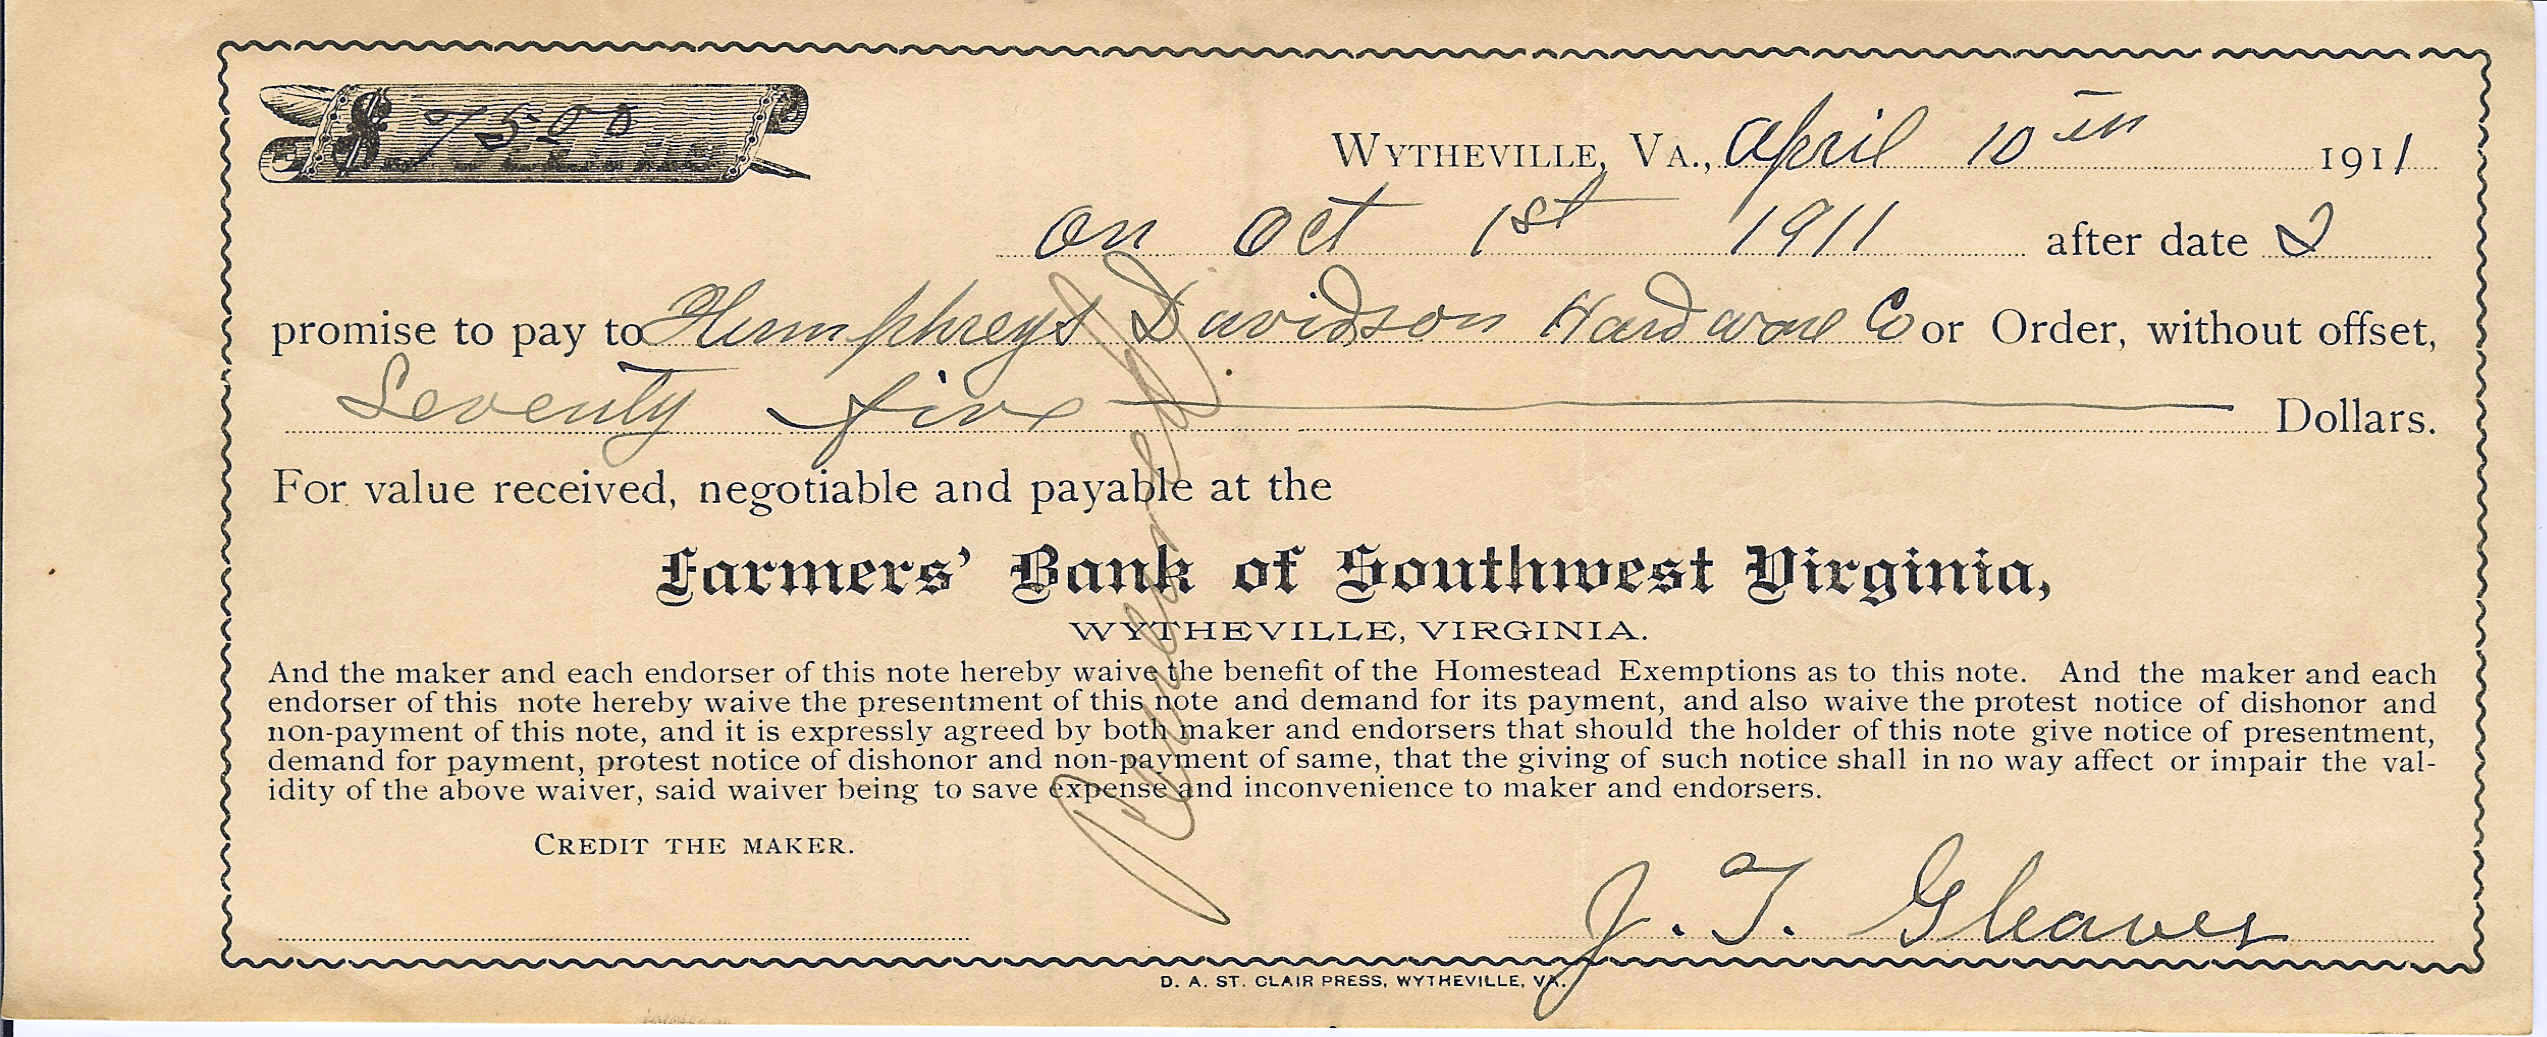 $ 75.00
WYTHEVILLE, VA., April 10th 1911
on Oct 1st 1911 after date I
promise to pay to Humphreys Davidson Hardware Co or Order, without offset,
Seventy five Dollars.
For value received, negotiable and payable at the
Farmers' Bank of Southwest Virginia,
WYTHEVILLE, VIRGINIA.
And the maker and each endorser of this note hereby waive the benefit of the Homestead Exemptions as to this note. And the maker and each
endorser of this note hereby waive the presentment of this note and demand for its payment, and also waive the protest notice of dishonor and
non-payment of this note, and it is expressly agreed by both maker and endorsers that should the holder of this note give notice of presentment,
demand for payment, protest notice of dishonor and non-payment of same, that the giving of such notice shall in no way affect or impair the val-
idity of the above waiver, said waiver being to save expense and inconvenience to maker and endorsers.
CREDIT THE MAKER.
J. T. Gleaves
D. A. ST. CLAIR PRESS, WYTHEVILLE, VA.